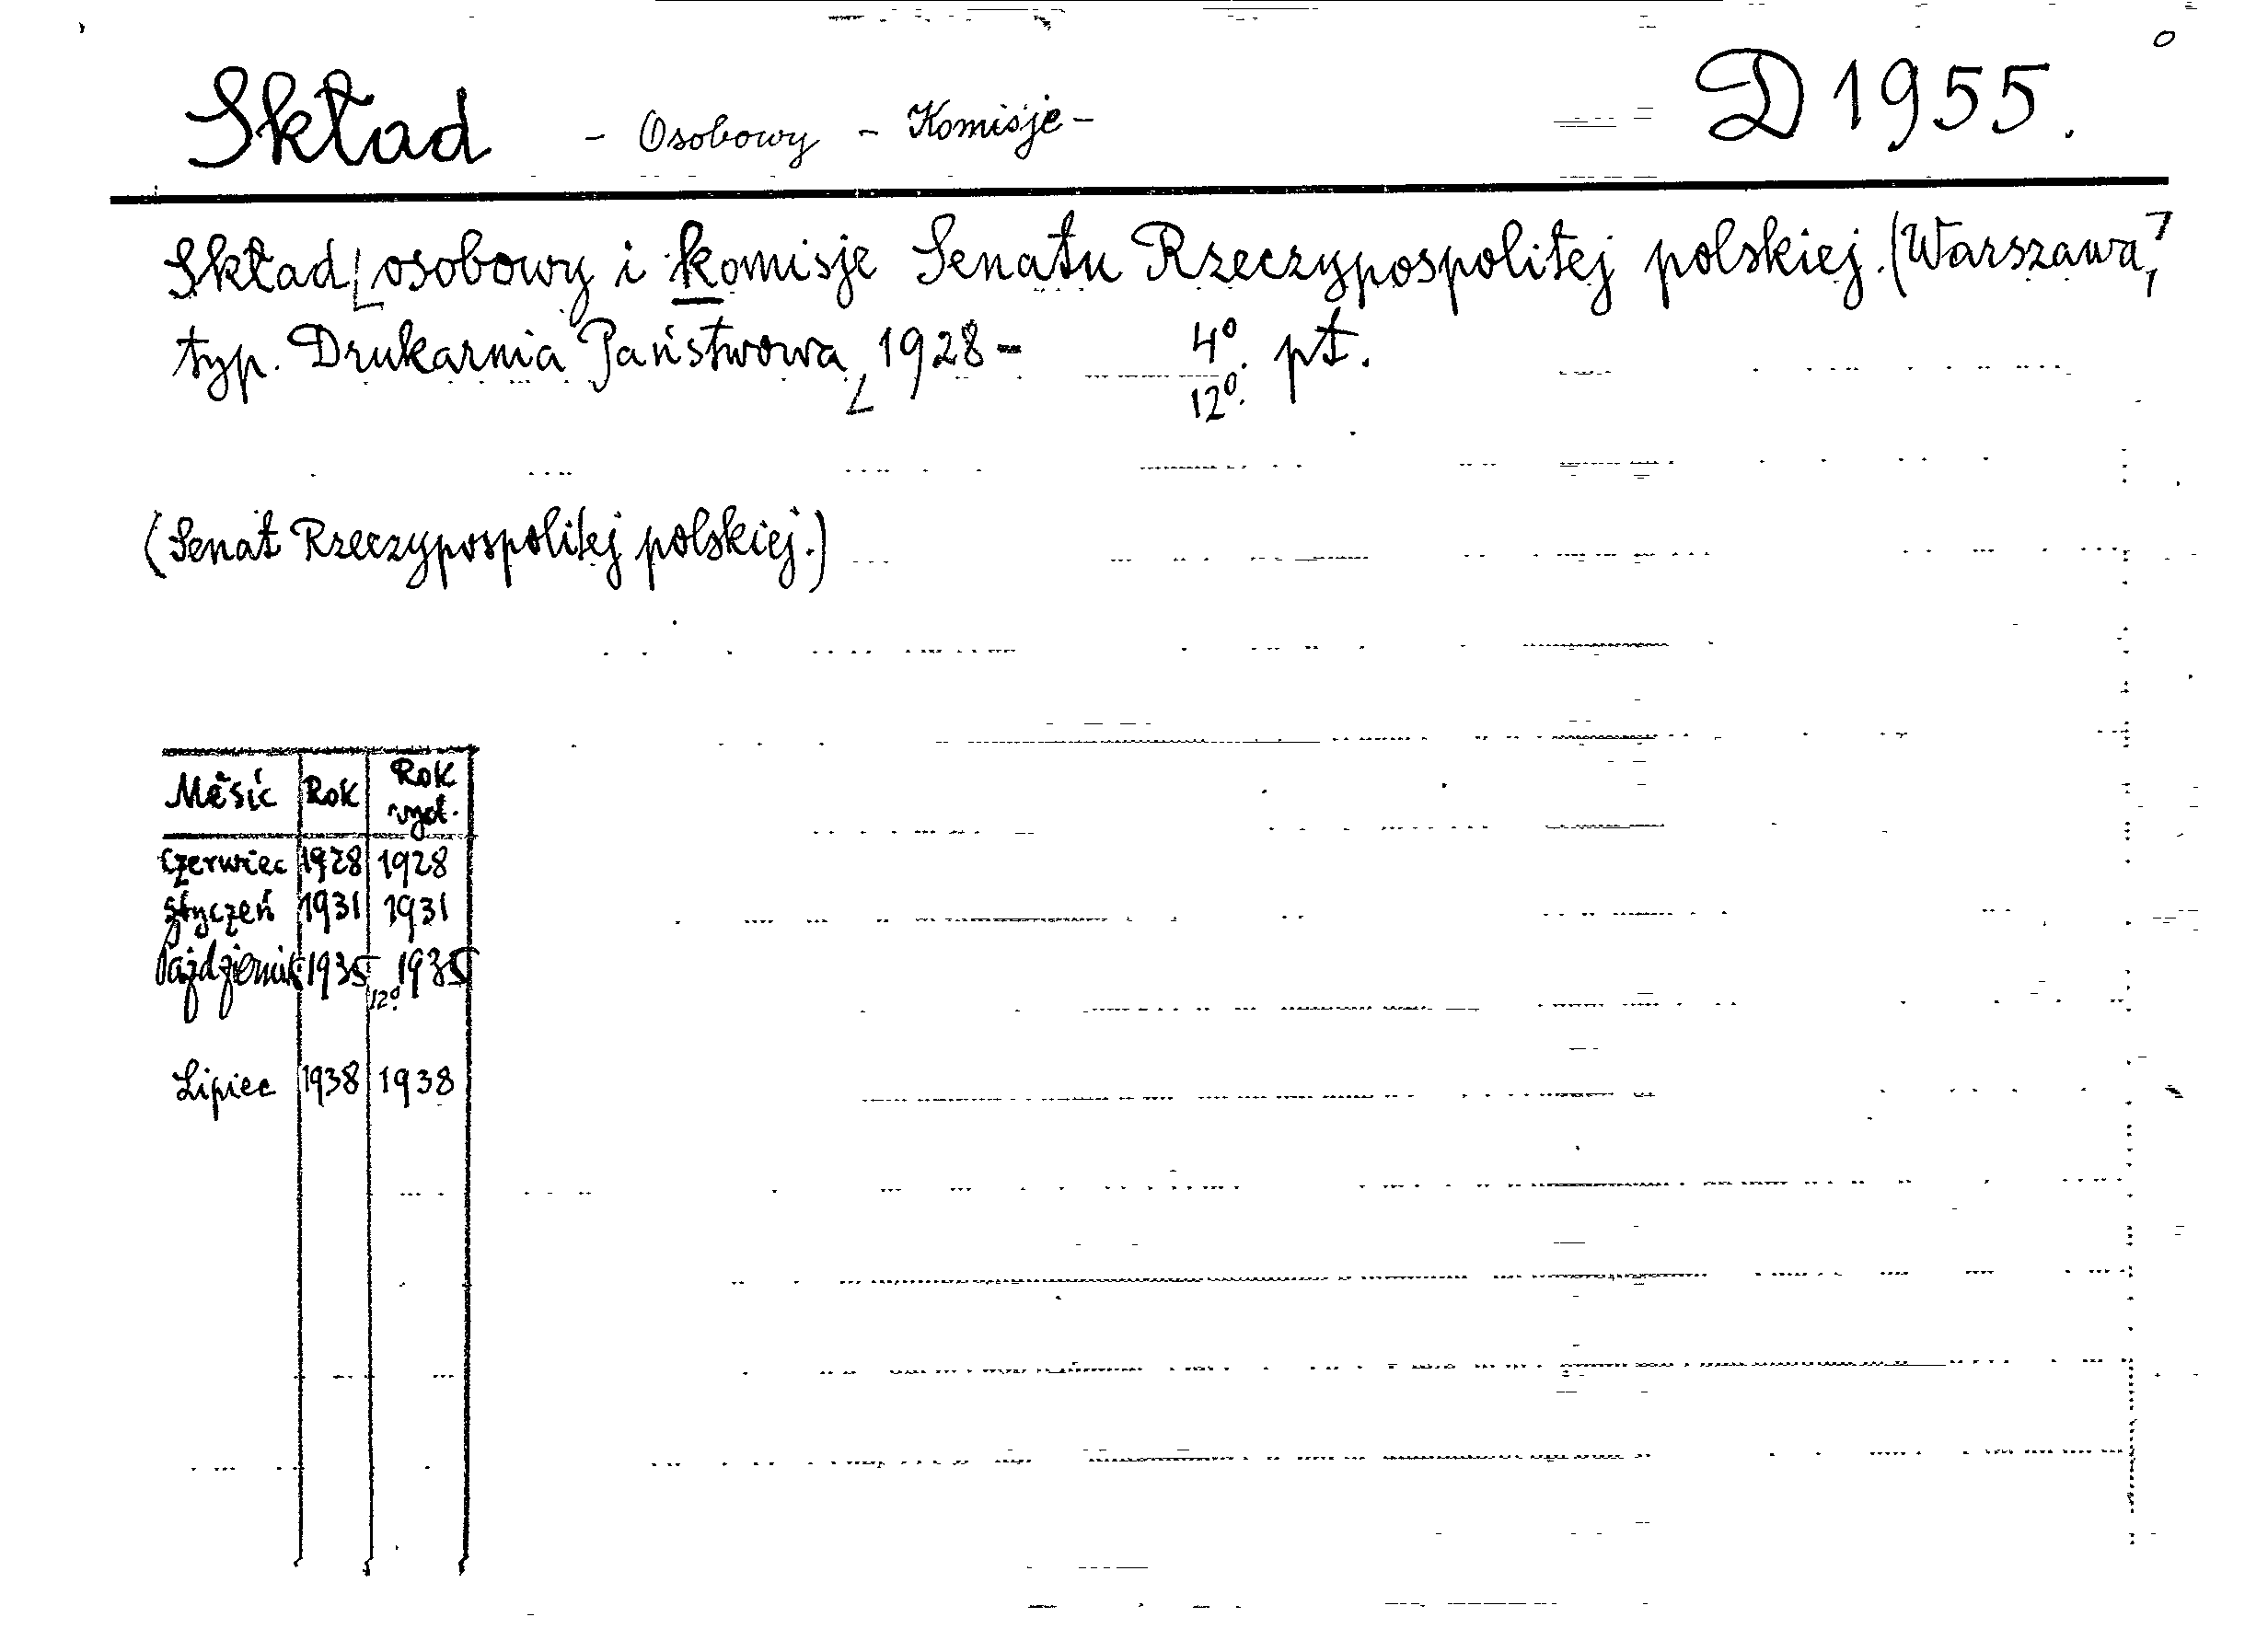 Skład - Osobowy - Komisje - D 1955.
Skład osobowy i komisje Senatu Rzeczypospolitej polskiej. (Warszawa,
typ. Drukarnia Państwowa, 1928 - 4°. pt.
12°.
(Senat Rzeczypospolitej polskiej.)
Měsíc Rok Rok vyd.
Czerwiec 1928 1928
Styczeń 1931 1931
Październik 1935 12°. 1935
Lipiec 1938 1938